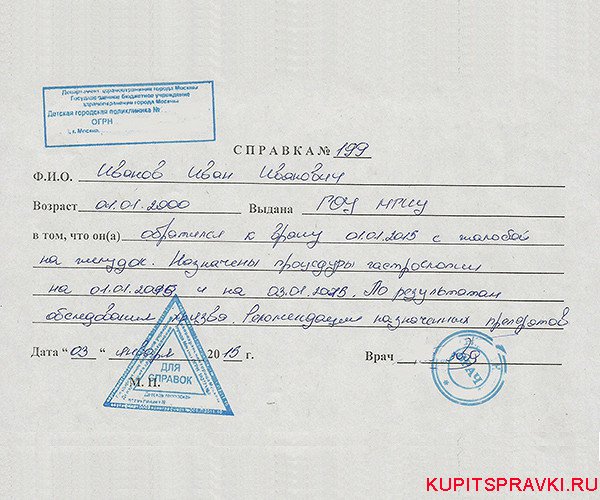 Департамент здравоохранения города Москвы
Государственное бюджетное учреждение
здравоохранения города Москвы
Детская городская поликлиника №
ОГРН
г. Москва,
СПРАВКА № 199
Ф.И.О. Иванов Иван Иванович
Возраст 01.01.2000 Выдана ГОУ
в том, что он(а) обратился к врачу 01.01.2015 с жалобой
на желудок. Назначены процедуры гастроскопии
на 01.01.2015 и на 03.01.2015. По результатам
обследования язва. Рекомендации назначенных препаратов
Дата "03" января 2015 г. Врач
М. П.
ДЛЯ
СПРАВОК
ВРАЧ
KUPITSPRAVKI.RU